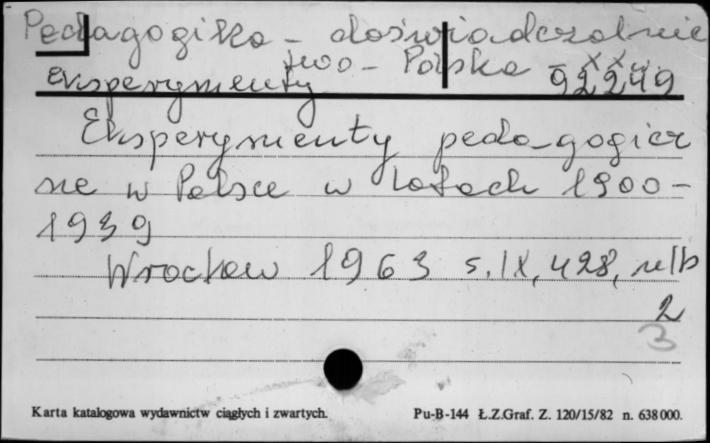 Pedagogika - doświadczalnic
two - Polska
Eksperymenty 92249
Eksperymenty pedagogicz
ne w Polsce w latach 1900-
1939
Wrocław 1963 s. IX, 428, nlb
2
3
Karta katalogowa wydawnictw ciągłych i zwartych. Pu-B-144 Ł.Z.Graf. Z. 120/15/82 n. 638000.